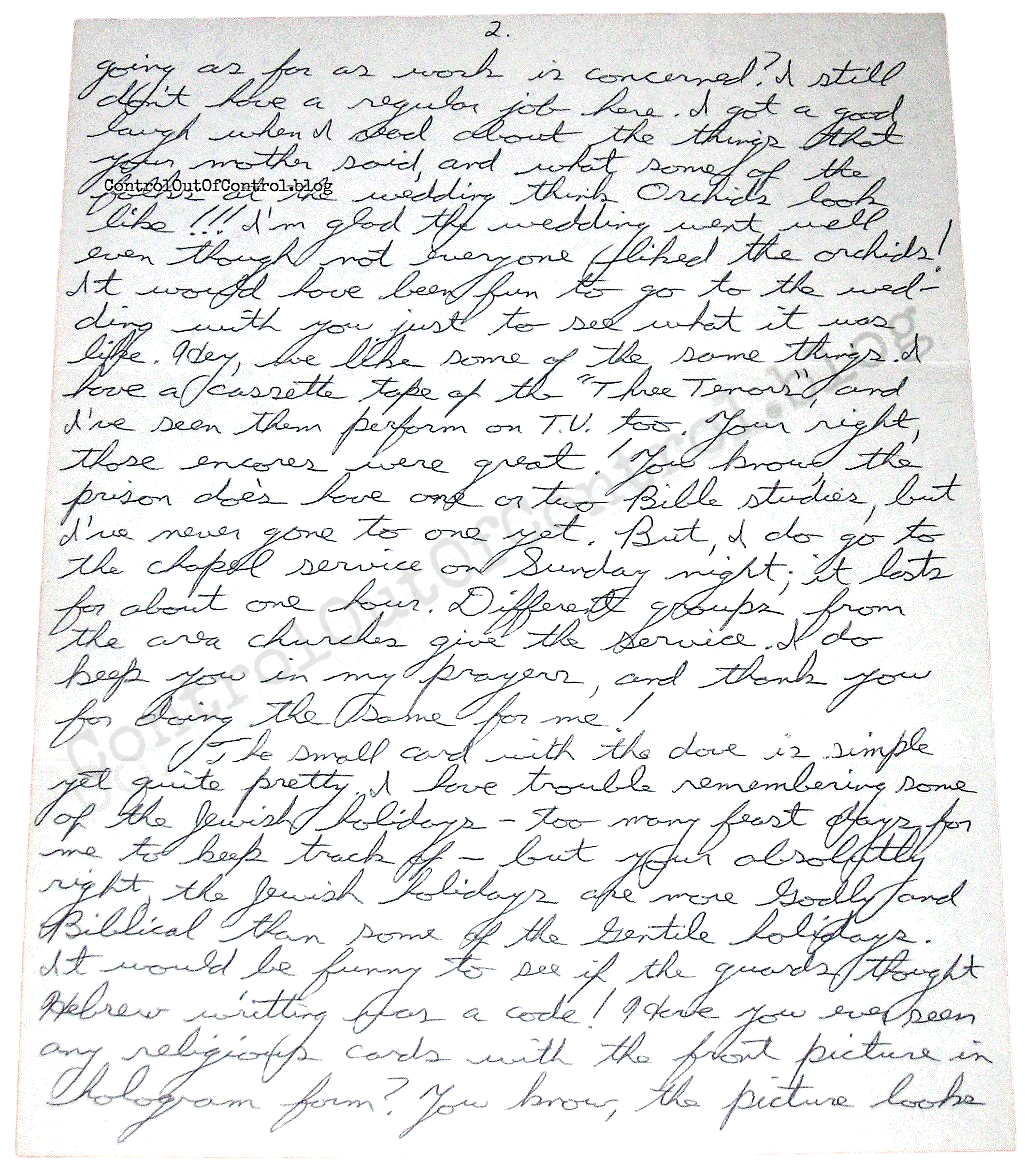 2.
going as far as work is concerned? I still
don't have a regular job here. I got a good
laugh when I read about the things that
your mother said, and what some of the
ControlOutOfControl.blog
folks at the wedding think Orchids look
like!!! I'm glad the wedding went well
even though not everyone liked the orchids!
It would have been fun to go to the wed-
ding with you just to see what it was
like. Hey, we like some of the same things. I
have a cassette tape of the "Three Tenors", and
I've seen them perform on T.V. too. Your right,
those encores were great! You know, the
prison does have one or two Bible studies, but
I've never gone to one yet. But, I do go to
the chapel service on Sunday night; it lasts
for about one hour. Different groups from
the area churches give the service. I do
keep you in my prayers, and thank you
for doing the same for me!
The small card with the dove is simple
yet quite pretty. I have trouble remembering some
of the Jewish holidays - too many feast days for
me to keep track of - but your absolutly
right, the Jewish holidays are more Godly and
Biblical than some of the Gentile holidays.
It would be funny to see if the guards thought
Hebrew writting was a code! Have you ever seen
any religious cards with the front picture in
hologram form? You know, the picture looks
ControlOutOfControl.blog